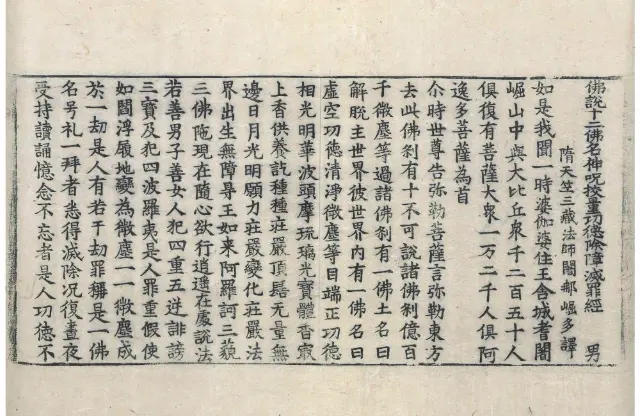 佛說十二佛名神呪挍量功德除障滅罪經 男
隋天竺三藏法師闍那崛多譯
如是我聞一時婆伽婆住王舍城耆闍
崛山中與大比丘衆千二百五十人
俱復有菩薩大衆一万二千人俱阿
逸多菩薩為首
尒時世尊告弥勒菩薩言弥勒東方
去此佛刹有十不可說諸佛刹億百
千微塵等過諸佛刹有一佛土名曰
解脫主世界彼世界内有一佛名曰
虛空功德清淨微塵等目端正功德
相光明華波頭摩琉璃光寶體香寂
上香供養訖種種莊嚴頂髻无量無
邊日月光明願力莊嚴變化莊嚴法
界出生無障㝵王如来阿羅訶三藐
三佛陁現在隨心欲行逍遥在處說法
若善男子善女人犯四重五逆誹謗
三寶及犯四波羅夷是人罪重假使
如閻浮履地變為微塵一一微塵成
於一劫是人有若干劫罪稱是一佛
名号礼一拜者悉得滅除况復晝夜
受持讀誦憶念不忘者是人功德不